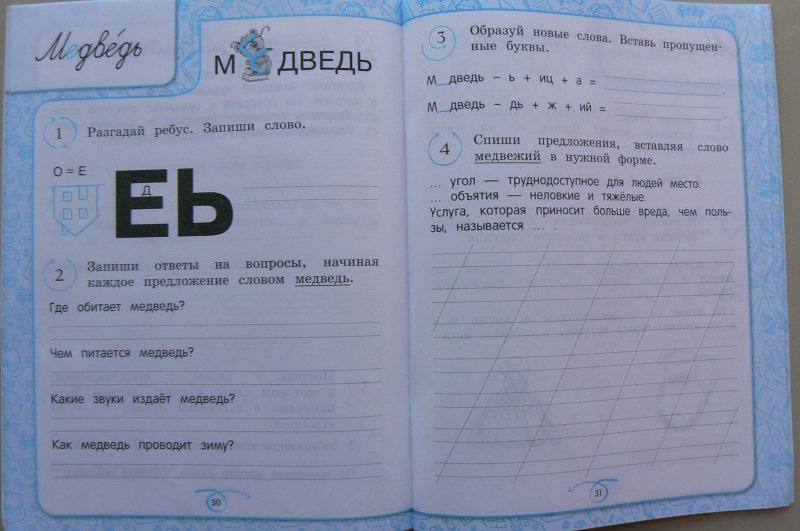 Медве́дь
М ДВЕДЬ
1 Разгадай ребус. Запиши слово.
О = Е
Д
ЕЬ
2 Запиши ответы на вопросы, начиная
каждое предложение словом медведь.
Где обитает медведь?
Чем питается медведь?
Какие звуки издаёт медведь?
Как медведь проводит зиму?
30
3 Образуй новые слова. Вставь пропущен-
ные буквы.
М_дведь – ь + иц + а =
М_дведь – дь + ж + ий =
4 Спиши предложения, вставляя слово
медвежий в нужной форме.
... угол — труднодоступное для людей место.
... объятия — неловкие и тяжёлые.
Услуга, которая приносит больше вреда, чем поль-
зы, называется ... .
31